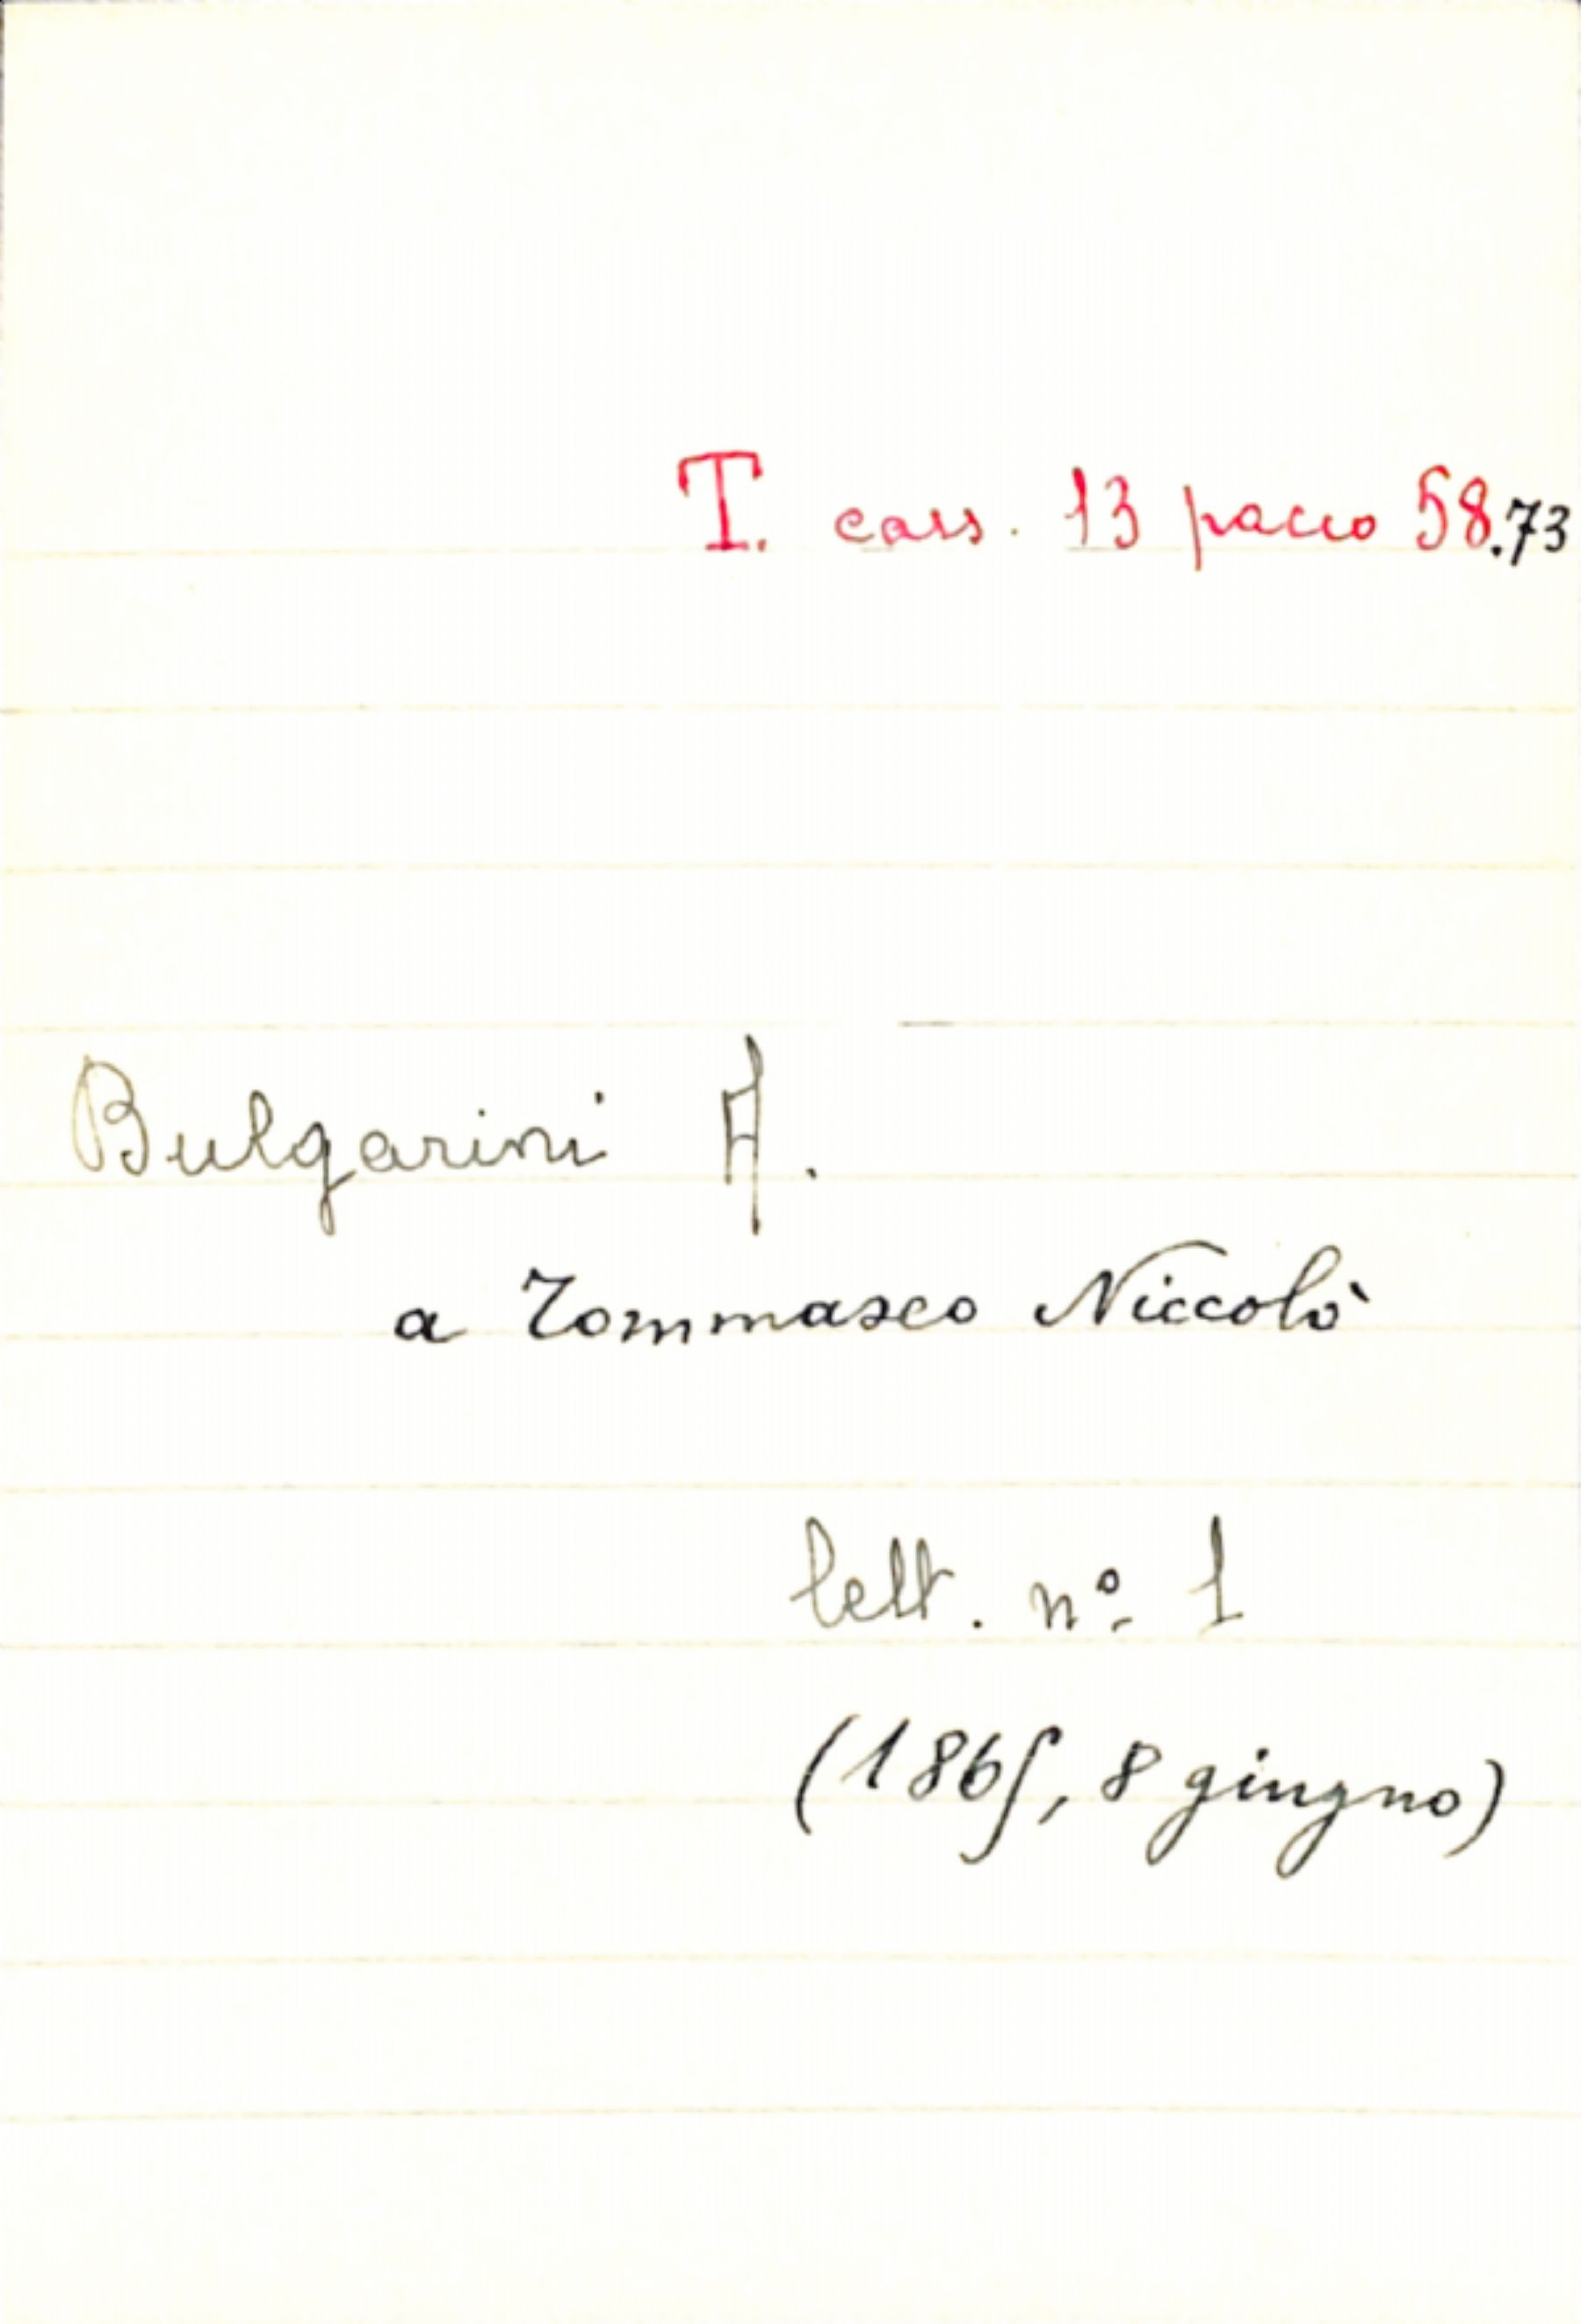 T. cass. 13 pacco 58.73
Bulgarini A.
a Tommaseo Niccolò
lett. nº 1
(1865, 8 giugno)